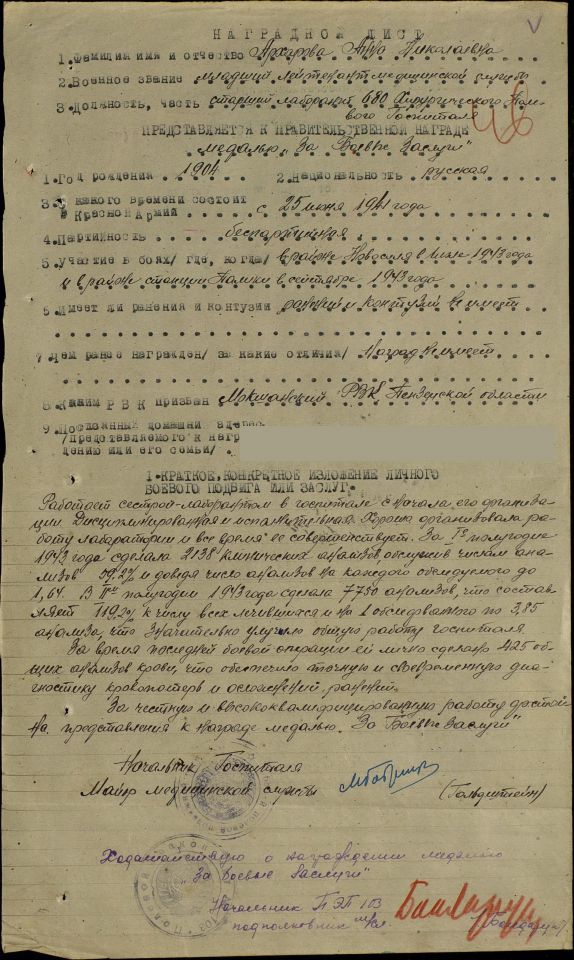 НАГРАДНОЙ ЛИСТ
1. Фамилия имя и отчество Архарова Анна Николаевна
2. Военное звание младший лейтенант медицинской службы
3. Должность, часть старший лаборант 680 Хирургического Поле-
вого Госпиталя
ПРЕДСТАВЛЯЕТСЯ К ПРАВИТЕЛЬСТВЕННОЙ НАГРАДЕ
медалью „За Боевые Заслуги"
1. Год рождения 1904 2. Национальность русская
3. С какого времени состоит
в Красной Армии с 25 июня 1941 года
4. Партийность беспартийная
5. Участие в боях/ где, когда/ в районе Новосиля в июле 1943 года
и в районе станции в сентябре 1943 года
6. Имеет ли ранения и контузии ранений и контузий не имеет
7. Чем ранее награжден/ за какие отличия/ Наград не имеет
8. Каким Р В К призван Мокшанский РВК Пензенской области
9. Постоянный домашний адрес
/представляемого к награ
дению или его семьи/
1. КРАТКОЕ, КОНКРЕТНОЕ ИЗЛОЖЕНИЕ ЛИЧНОГО
БОЕВОГО ПОДВИГА ИЛИ ЗАСЛУГ.
Работает сестрой-лаборантом в госпитале с начала его организа-
ции. Дисциплинированная и исполнительная. Хорошо организовала ра-
боту лаборатории и все время её совершенствует. За I полугодие
1943 года сделала 2138 клинических анализов, обслужив числом ана-
лизов 59,2% и доведя число анализов на каждого обследуемого до
1,64. В II полугодии 1943 года сделала 7750 анализов, что состав-
ляет 119,2% к числу всех лечившихся и на 1 обследованного по 3,85
анализа, что значительно улучило общую работу госпиталя.
За время последней боевой операции ей лично сделано 425 об-
щих анализов крови, что обеспечило точную и своевременную диа-
гностику кровопотерь и осложнений ранений.
За честную и высококвалифицированную работу достой-
на представления к награде медалью „За Боевые Заслуги"
Начальник Госпиталя
Майор медицинской службы (Гольдштейн)
Ходатайствую о награждении медалью
„За боевые заслуги"
Начальник ПЭП 103
подполковник м/сл